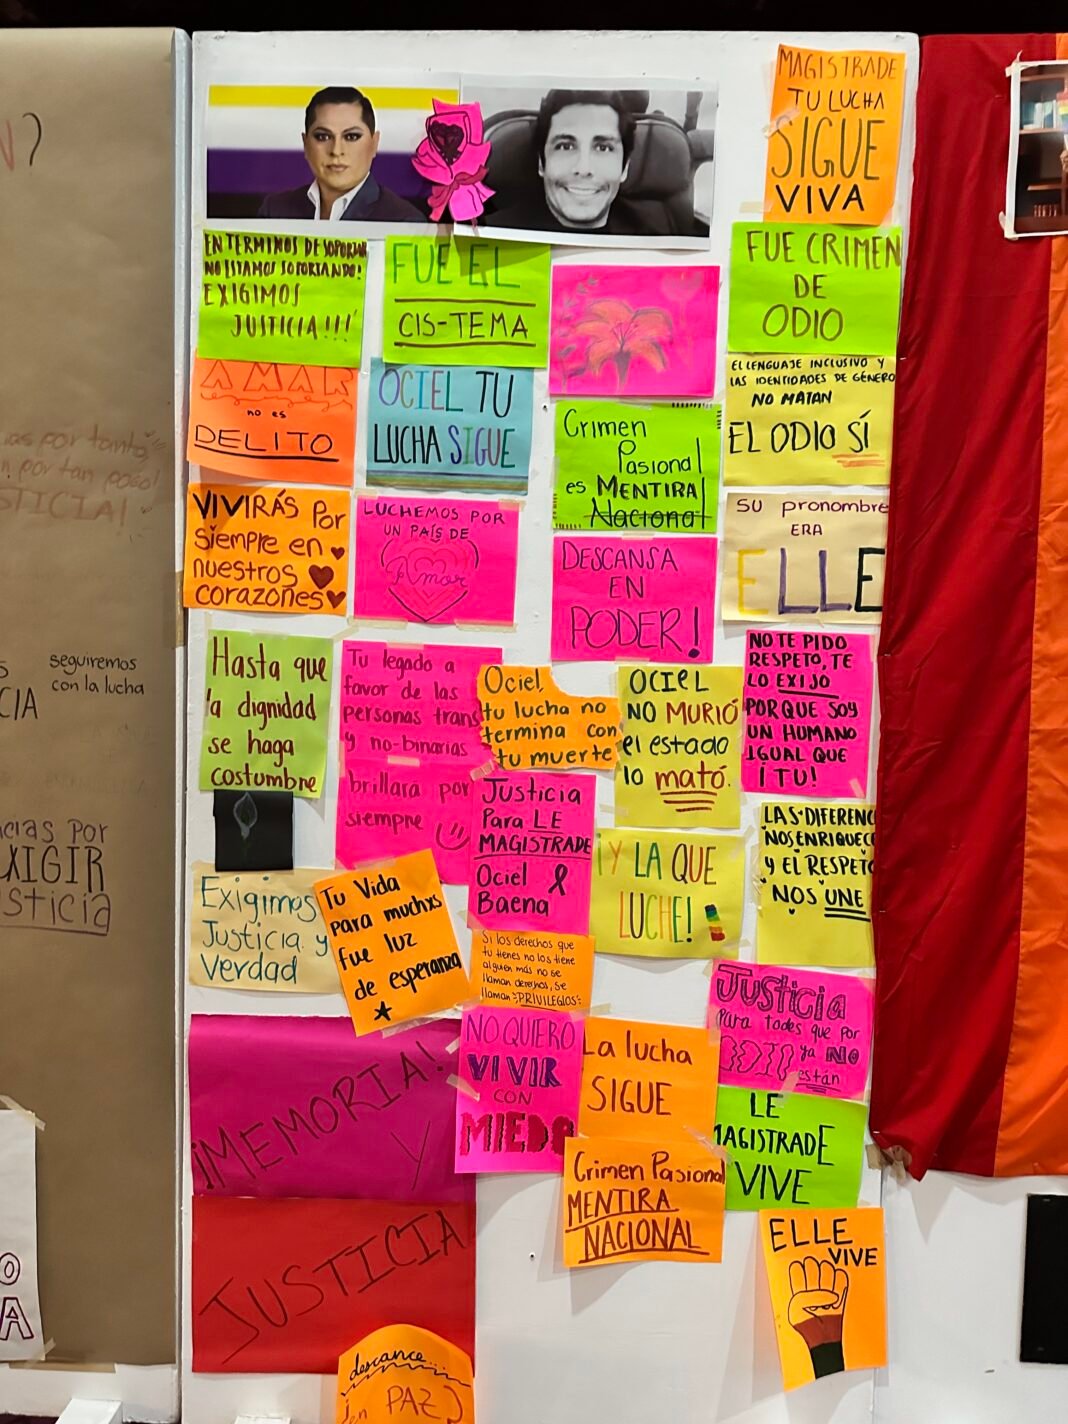 MAGISTRADE
TU LUCHA
SIGUE
VIVA
EN TERMINOS DE SOPORTAR
NO ESTAMOS SOPORTANDO!
EXIGIMOS
JUSTICIA!!!
FUE EL
CIS-TEMA
FUE CRIMEN
DE
ODIO
AMAR
no es
DELITO
OCIEL TU
LUCHA SIGUE
Crimen
Pasional
es MENTIRA
Nacional
EL LENGUAJE INCLUSIVO Y
LAS IDENTIDADES DE GÉNERO
NO MATAN
EL ODIO SÍ
VIVIRÁS Por
siempre en
nuestros
corazones
LUCHEMOS POR
UN PAÍS DE
Amor
DESCANSA
EN
PODER!
SU pronombre
ERA
ELLE
Hasta que
la dignidad
se haga
costumbre
Tu legado a
favor de las
personas trans
y no-binarias
brillará por
siempre
Ociel,
tu lucha no
termina con
tu muerte
OCIEL
NO MURIÓ
el estado
lo mató.
NO TE PIDO
RESPETO, TE
LO EXIJO
PORQUE SOY
UN HUMANO
IGUAL QUE
¡TU!
Justicia
Para LE
MAGISTRADE
Ociel
Baena
¡Y LA QUE
LUCHE!
LAS DIFERENC
NOS ENRIQUECE
Y EL RESPETO
NOS UNE
Exigimos
Justicia y
Verdad
Tu Vida
para muchxs
fue luz
de esperanza
Si los derechos que
tu tienes no los tiene
alguien más no se
llaman derechos, se
llaman PRIVILEGIOS
Justicia
Para todes que por
ODIO ya NO
están
NO QUIERO
VIVIR
CON
MIEDO
La lucha
SIGUE
¡MEMORIA!
Y
JUSTICIA
LE
MAGISTRADE
VIVE
Crimen Pasional
MENTIRA
NACIONAL
ELLE
VIVE
descance...
¡en PAZ
N?
as por tanto,
n por tan poco!
STICIA!
seguiremos
con la lucha
CIA
cias Por
XIGIR
sticia
O
A